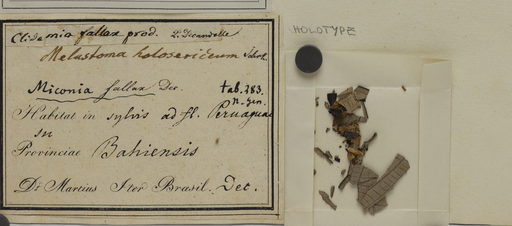 Clidemia fallax prod. D. Decandolle
Melastoma holosericeum Schrk.
Miconia fallax Dec. tab. 283.
n. gen.
Habitat in sylvis ad fl. Peruaguaç
su
Provinciae Bahiensis
Dr Martius Iter Brasil. Dec.
HOLOTYPE